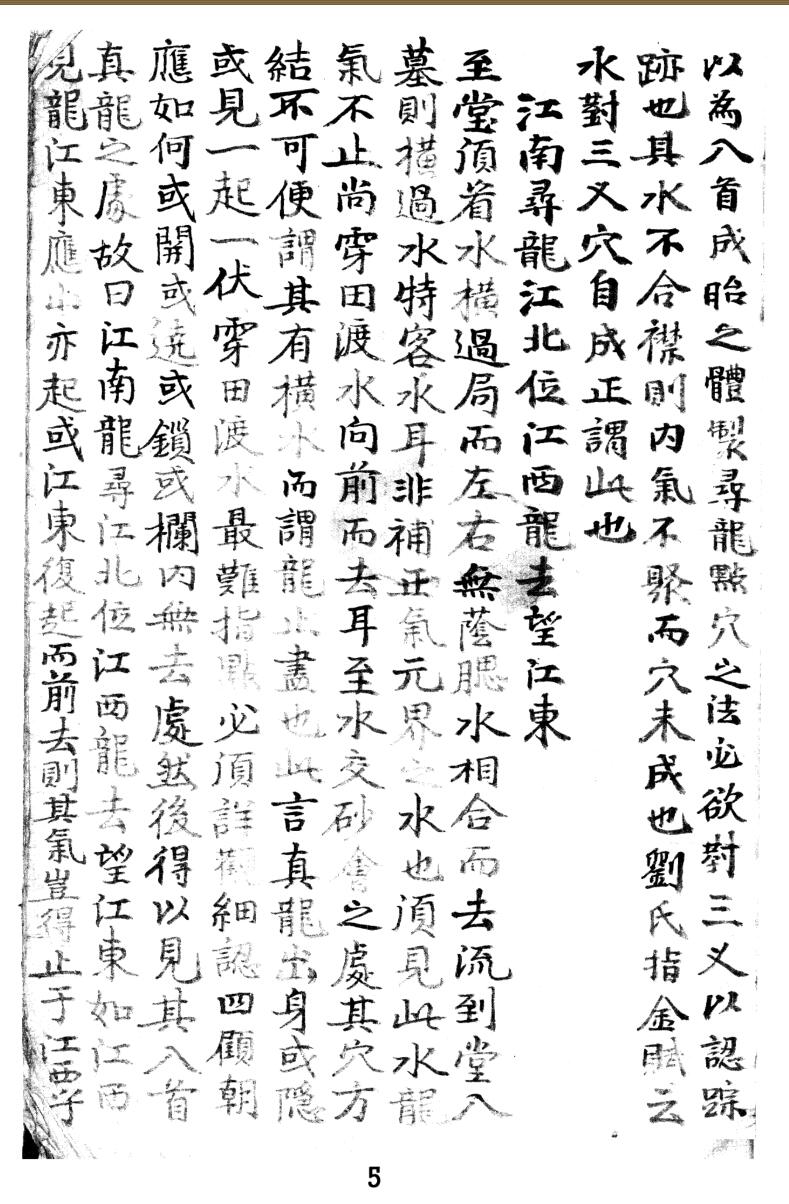 以為入首成胎之體製尋龍點穴之法必欲對三义以認踪
跡也其水不合襟則内氣不聚而穴未成也劉氏指金賦云
水對三义穴自成正謂此也
江南尋龍江北位江西龍去望江東
至堂湏看水橫過局而左右無蔭腮水相合而去流到堂入
墓則橫過水特客水耳非補正氣元界之水也湏見此水龍
氣不止尚穿田渡水向前而去耳至水交砂會之處其穴方
結不可便謂其有橫水而謂龍止盡也此言真龍出身或隱
或見一起一伏穿田渡水最難指點必湏詳觀細認四顧朝
應如何或開或遶或鎖或欄内無去處然後得以見其入首
真龍之處故曰江南龍尋江北位江西龍去望江東如江西
見龍江東應亦起或江東復起而前去則其氣豈得止于江西乎
5